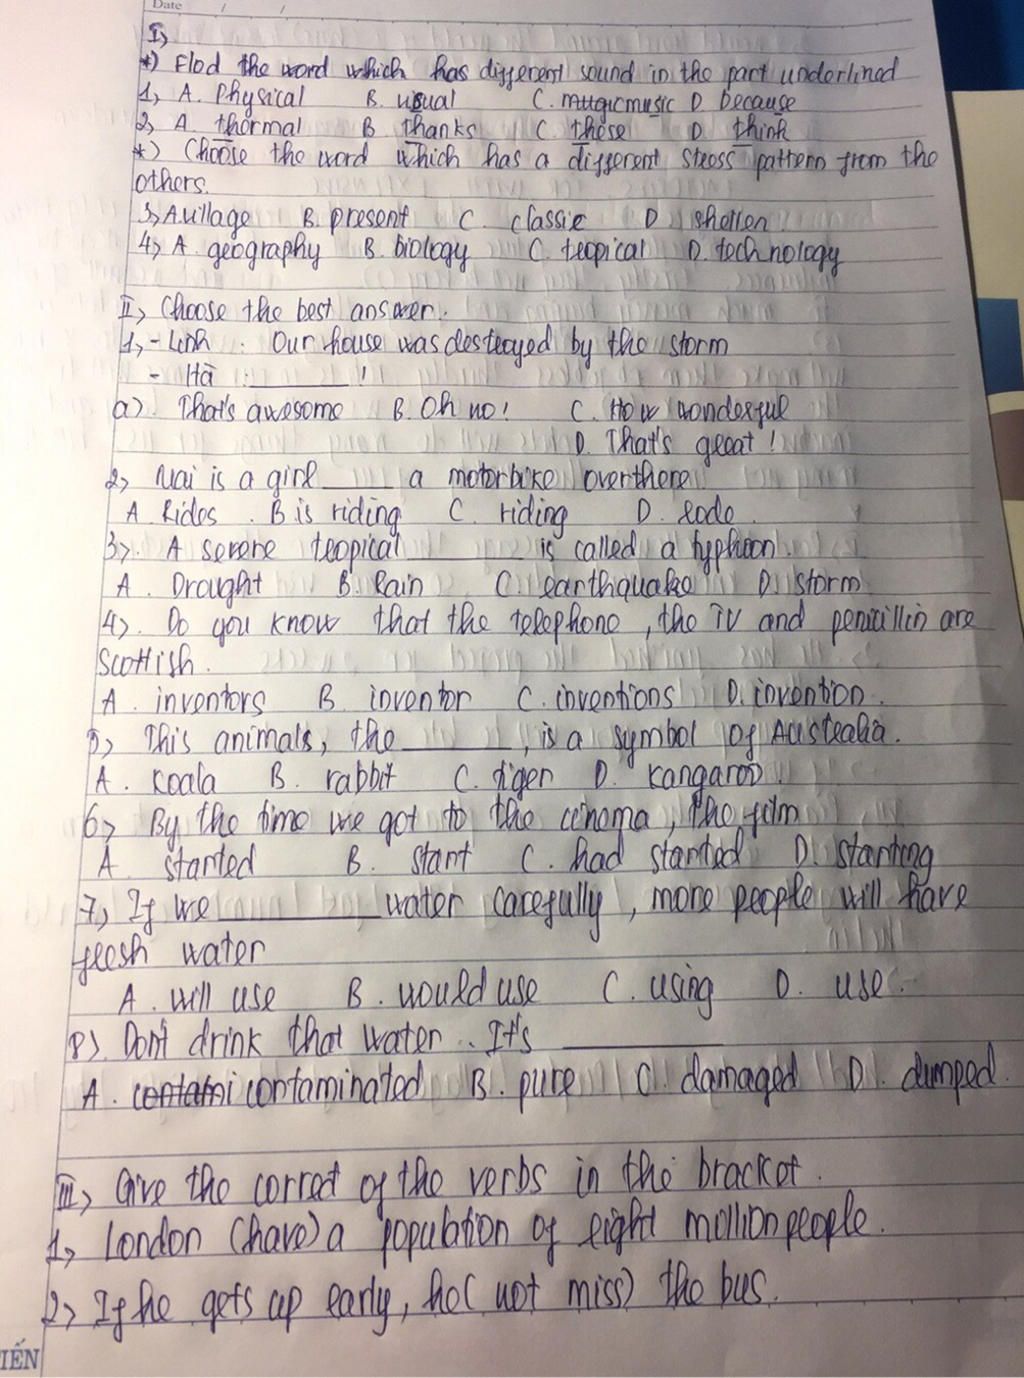 Date
I,
*) Find the word which has different sound in the part underlined
1, A. Physical B. usual C. music D. because
2, A. thermal B thanks C these D. think
*) Choose the word which has a different stress pattern from the
others.
3, A village B. present C. classic D. shelter
4, A. geography B. biology C. tropical D. technology
II, Choose the best answer.
1, - Linh : Our house was destroyed by the storm
- Hà : ________ !
a). That's awesome B. Oh no! C. How wonderful
D. That's great !
2, Mai is a girl ______ a motorbike overthere
A. Rides B is riding C. riding D. rode
3,. A severe tropical ________ is called a typhoon.
A. Drought B. Rain C. earthquake D. storm
4,. Do you know that the telephone, the TV and penicillin are
Scottish.
A. inventors B. inventor C. inventions D. invention.
5, This animals, the ________, is a symbol of Australia.
A. Koala B. rabbit C. tiger D. kangaroo.
6, By the time we got to the cinema, the film
A. started B. start C. had started D. starting
7, If we __________ water carefully, more people will have
fresh water
A. will use B. would use C. using D. use.
8, Don't drink that water.. It's __________
A. contaminated B. pure C. damaged D. dumped.
III, Give the correct of the verbs in the bracket.
1, London (have) a population of eight million people.
2, If he gets up early, he( not miss) the bus.
IẾN